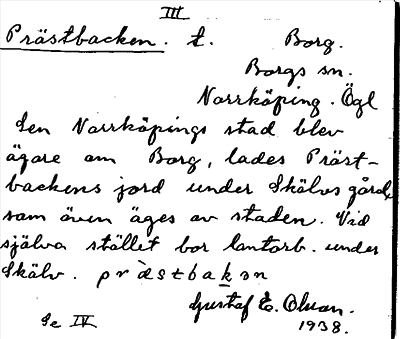 III
Prästbacken. t. Borg.
Borgs sn.
Norrköping. Ögl
Sen Norrköpings stad blev
ägare om Borg, lades Präst-
backens jord under Skälvs gård,
som även äges av staden. Vid
själva stället bor lantarb. under
Skälv. præstbakən
Gustaf E. Olson.
Se IV 1938.